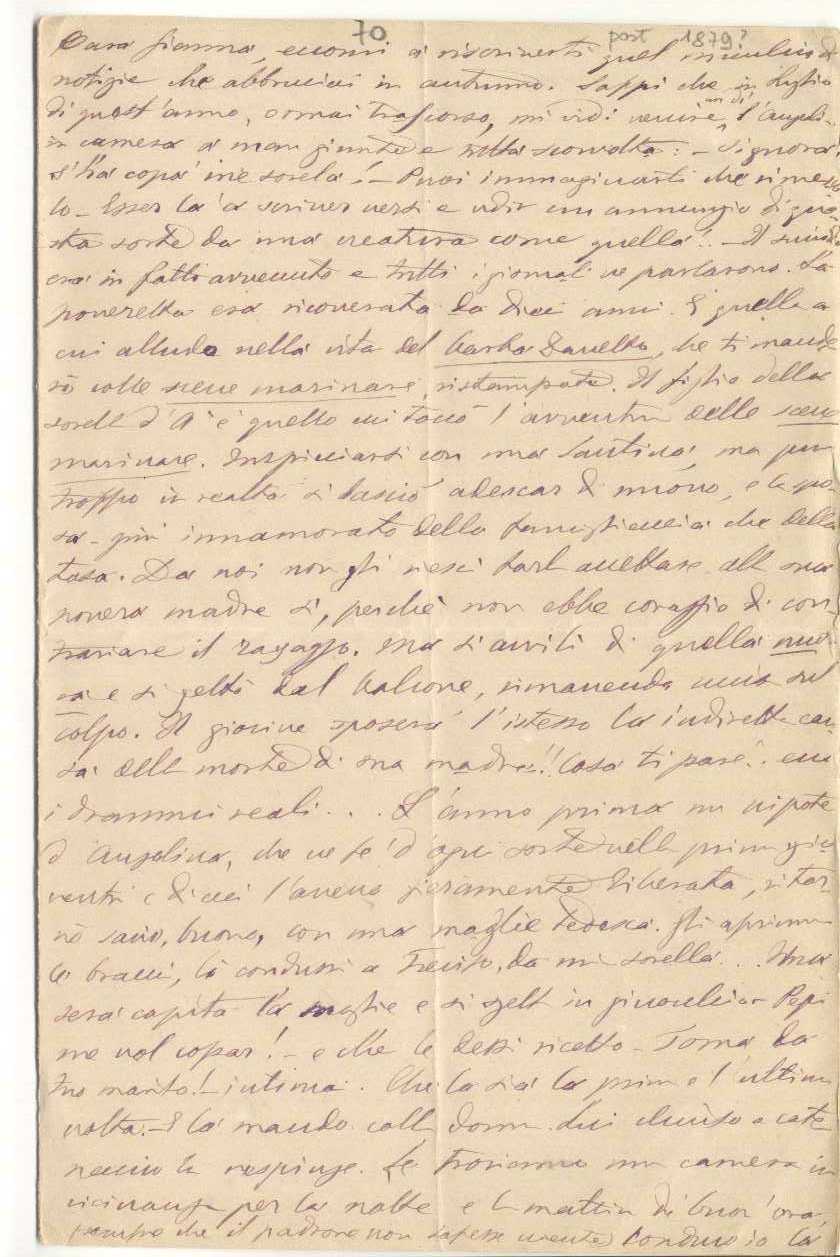 70 post 1879?
Cara Gianna, eccomi a riscriverti quel
notizie che abbruciai in autunno. Sappi che in Luglio
di quest'anno, ormai trascorso, mi vidi venire, un dì, l'Angeli-
in camera a man giunte e tutta sconvolta: - Signora!
s'ha copà me sorela! - Puoi immaginarti che
lo - Esser là a scriver versi e udir un annunzio di que
sta sorte da una creatura come quella!.. - Il
era in fatti avvenuto e tutti i giornali ne parlarono. La
poveretta era ricoverata da dieci anni. E quella a
cui alludo nella vita del barba Davetta, che ti mande
rò colle scene marinare, ristampate. Il figlio della
sorella d'A è quello cui toccò l'avventura delle scene
marinare. con una Santina, ma pur
troppo in realtà si lasciò adescar di nuovo, e la spo
sa - più innamorato della famiglia che della
tosa. Da noi non gli riescì farla accettare, alla sua
povera madre sì, perchè non ebbe coraggio di con
trariare il ragazzo. Ma si avvilì di quella nuo
ra e si gettò dal balcone, rimanendo uccisa sul
colpo. Il giovine sposerà l'istesso la indiretta cau
sa della morte di sua madre!! Cosa ti pare?. ecco
i drammi reali... L'anno prima un nipote
d'Angelina, che ne fe' d'ogni sorte nella prima gio
ventù e di cui l'aveva liberata, ritor
nò savio, buono, con una moglie tedesca. Gli aprimmo
le bracci, lo condussi a Treviso, da mia sorella... Una
sera capita la moglie e si gett in ginocchio - Pepi
me vol copar! - e che le dessi ricetto - Torna da
tuo marito! - intima. Che la sia la prima e l'ultima
volta. - E la mando colla donna. Lui chiuso a cate
naccio la respinge. Le troviamo una camera in
vicinanza per la notte e la mattina di buon'ora,
sempre che il padrone non sapesse niente, conduco io la